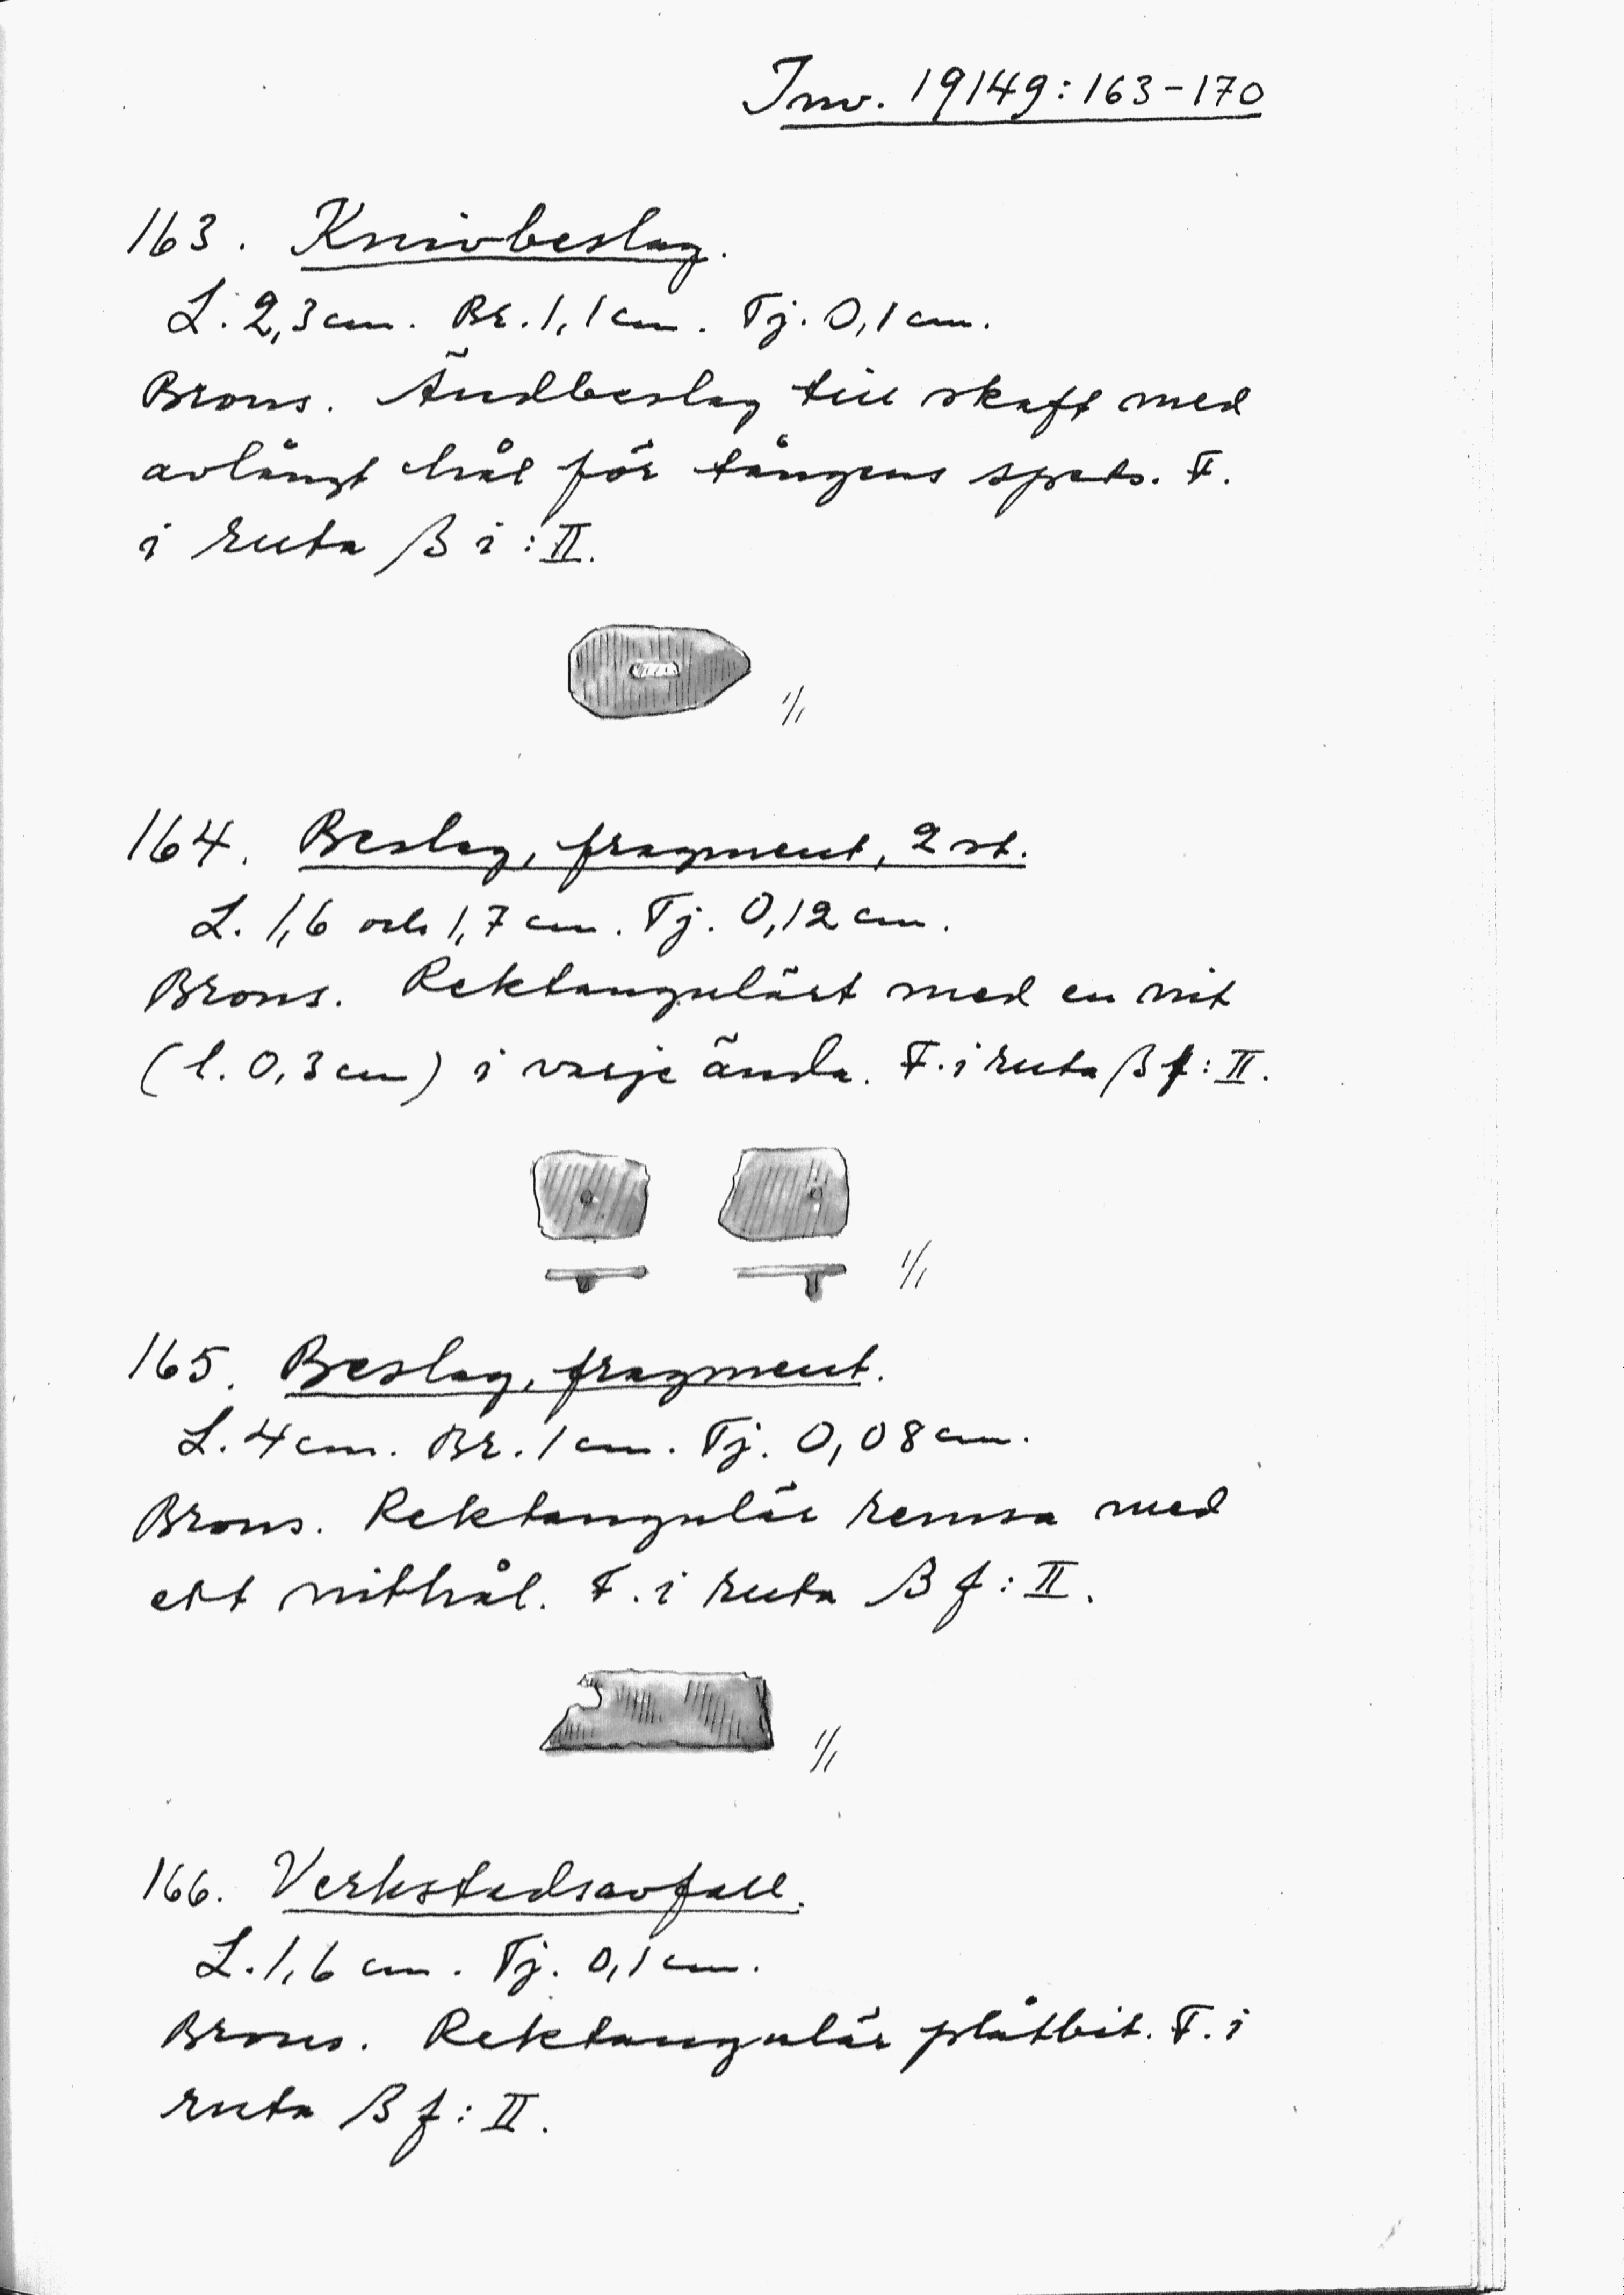 Inv. 19149:163-170
163. Knivbeslag.
L. 2,3 cm. Br. 1,1 cm. Tj. 0,1 cm.
Brons. Ändbeslag till skaft med
avlångt hål för tångens spets. F.
i ruta β i : II.
1/1
164. Beslag, fragment, 2 st.
L. 1,6 och 1,7 cm. Tj. 0,12 cm.
Brons. Rektangulärt med en nit
(l. 0,3 cm) i varje ända. F. i ruta β f : II.
1/1
165. Beslag, fragment.
L. 4 cm. Br. 1 cm. Tj. 0,08 cm.
Brons. Rektangulär remsa med
ett nithål. F. i ruta β f : II.
1/1
166. Verkstadsavfall.
L. 1,6 cm. Tj. 0,1 cm.
Brons. Rektangulär plåtbit. F. i
ruta β f : II.